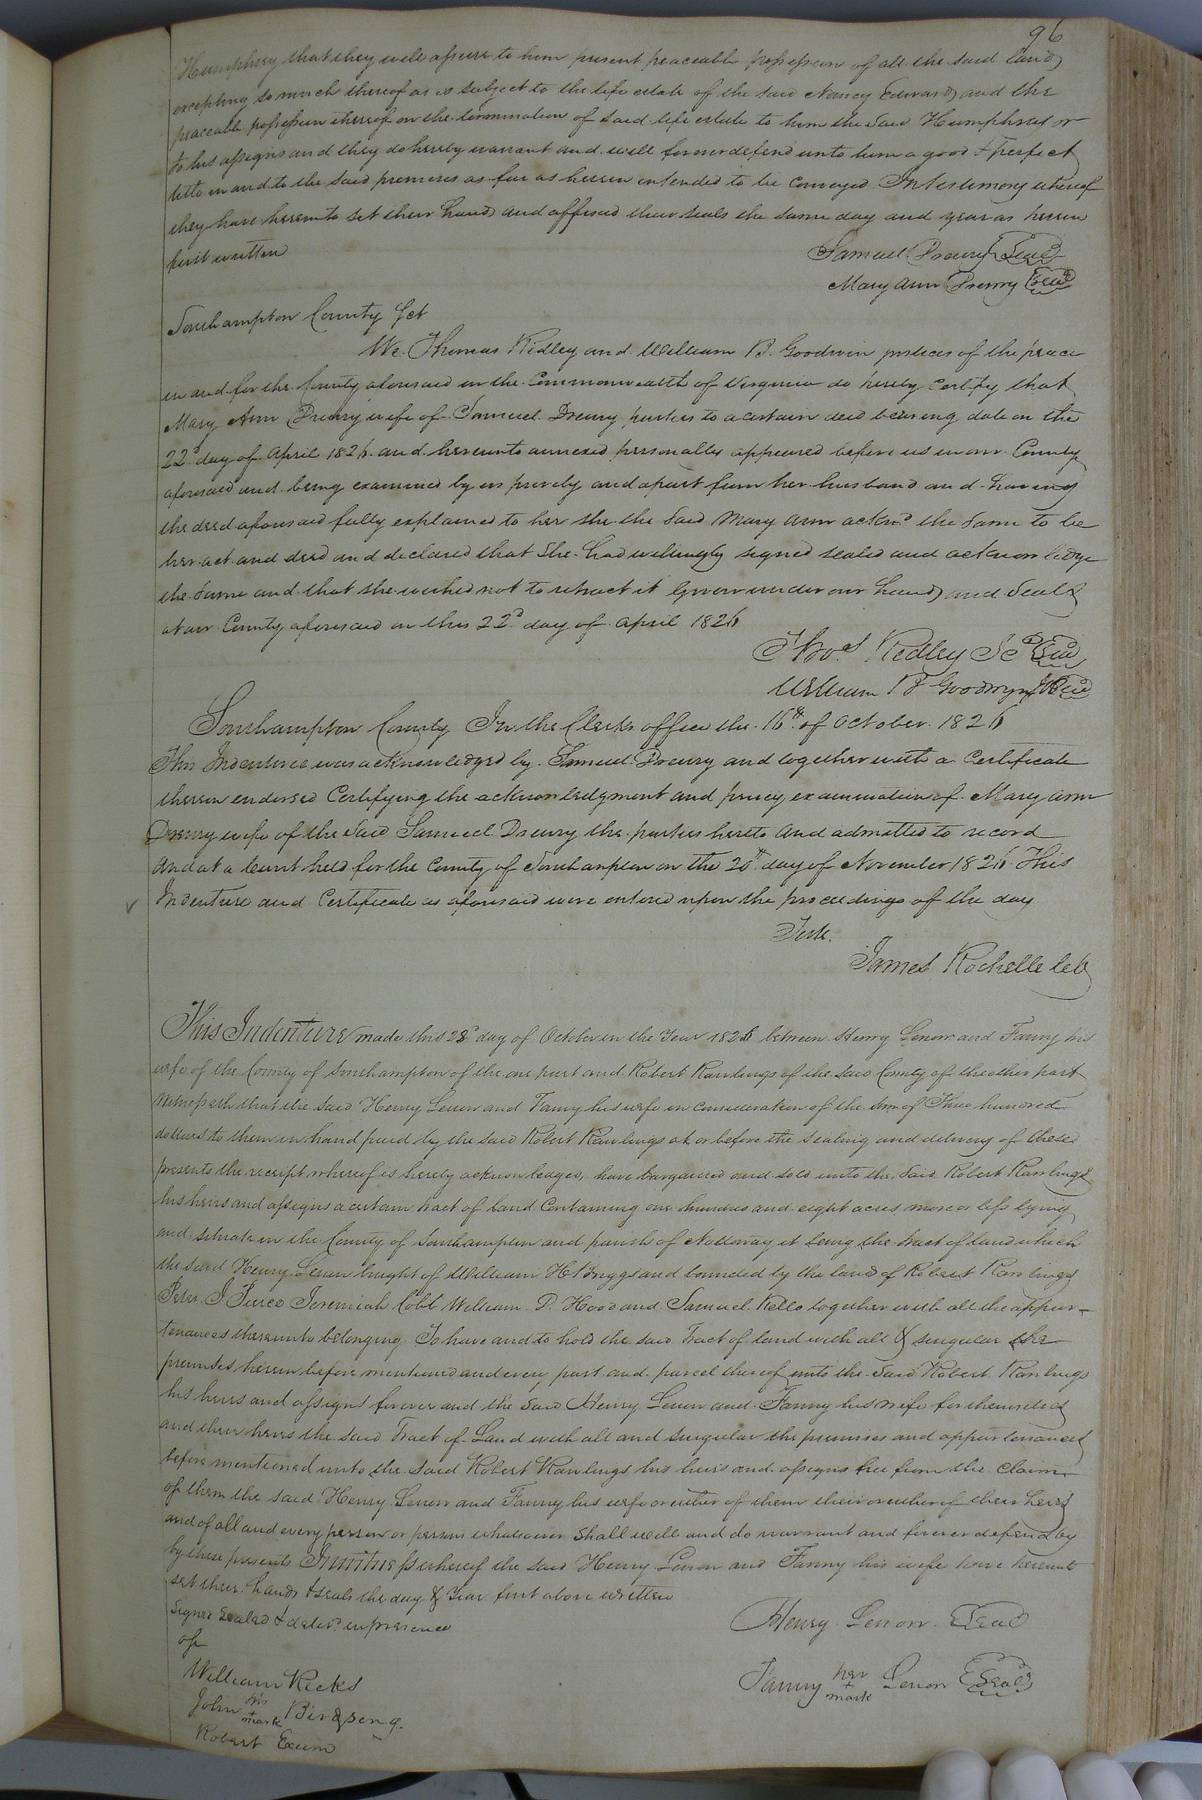 96
Humphrey that they will assure to him present peaceable possession of all the said land
excepting so much thereof as is subject to the life estate of the said Nancy Edwards and the
peaceable possession thereof on the termination of said life estate to him the said Humphrey or
to his assigns and they do hereby warrant and will forever defend unto him a good & perfect
title in and to the said premises as far as herein intended to be conveyed In testimony whereof
they have hereunto set their hands and affixed their seals the same day and year as herein
first written
Samuel Drewry Seal
Mary Ann Drewry Seal
Southampton County Sct
We Thomas Ridley and William B. Goodwin justices of the peace
in and for the County aforesaid in the Commonwealth of Virginia do hereby certify that
Mary Ann Drewry wife of Samuel Drewry parties to a certain deed bearing date on the
22d day of April 1826 and hereunto annexed personally appeared before us in our County
aforesaid and being examined by us privily and apart from her husband and having
the deed aforesaid fully explained to her she the said Mary Ann acknd the same to be
her act and deed and declared that she had willingly signed sealed and acknowledge
the same and that she wished not to retract it Given under our hands and Seals
at our County aforesaid on this 22d day of April 1826
Thos Ridley Seal
William B Goodwyn Seal
Southampton County In the Clerks office the 16th of October 1826
This Indenture was acknowledged by Samuel Drewry and together with a Certificate
thereon endorsed Certifying the acknowledgment and privy examination of Mary Ann
Drewry wife of the said Samuel Drewry the parties hereto and admitted to record
And at a Court held for the County of Southampton on the 20th day of November 1826 This
Indenture and Certificate as aforesaid were entered upon the proceedings of the day
Teste.
James Rochelle Clk
This Indenture made this 28d day of October in the Year 1826 between Henry Lenow and Fanny his
wife of the County of Southampton of the one part and Robert Rawlings of the said County of the other part
Witnesseth that the said Henry Lenow and Fanny his wife in consideration of the sum of Three hundred
dollars to them in hand paid by the said Robert Rawlings at or before the sealing and delivery of these
presents the receipt whereof is hereby acknowledged, have bargained and sold unto the said Robert Rawlings
his heirs and assigns a certain tract of land Containing one hundred and eight acres more or less lying
and situate in the County of Southampton and parish of Nottoway it being the tract of land which
the said Henry Lenow bought of William H Briggs and bounded by the land of Robert Rawlings
Peter J Pierce Jeremiah Cobb William D. Hood and Samuel Kello together with all the appur-
tenances thereunto belonging. To have and to hold the said Tract of land with all & singular the
premises herein before mentioned and every part and parcel thereof unto the said Robert Rawlings
his heirs and assigns forever and the said Henry Lenow and Fanny his wife for themselves
and their heirs the said Tract of Land with all and singular the premises and appurtenances
before mentioned unto the said Robert Rawlings his heirs and assigns free from the claim
of them the said Henry Lenow and Fanny his wife or either of them their or either of their heirs
and of all and every person or persons whatsoever shall will and do warrant and forever defend by
by these presents In Witness whereof the said Henry Lenow and Fanny his wife have hereunto
set their hands & seals the day & Year first above written
Signed Sealed & delivd in presence
of
Henry Lenow Seal
William Ricks
Fanny her + mark Lenow Seal
John his + mark Birdsong.
Robert Exum